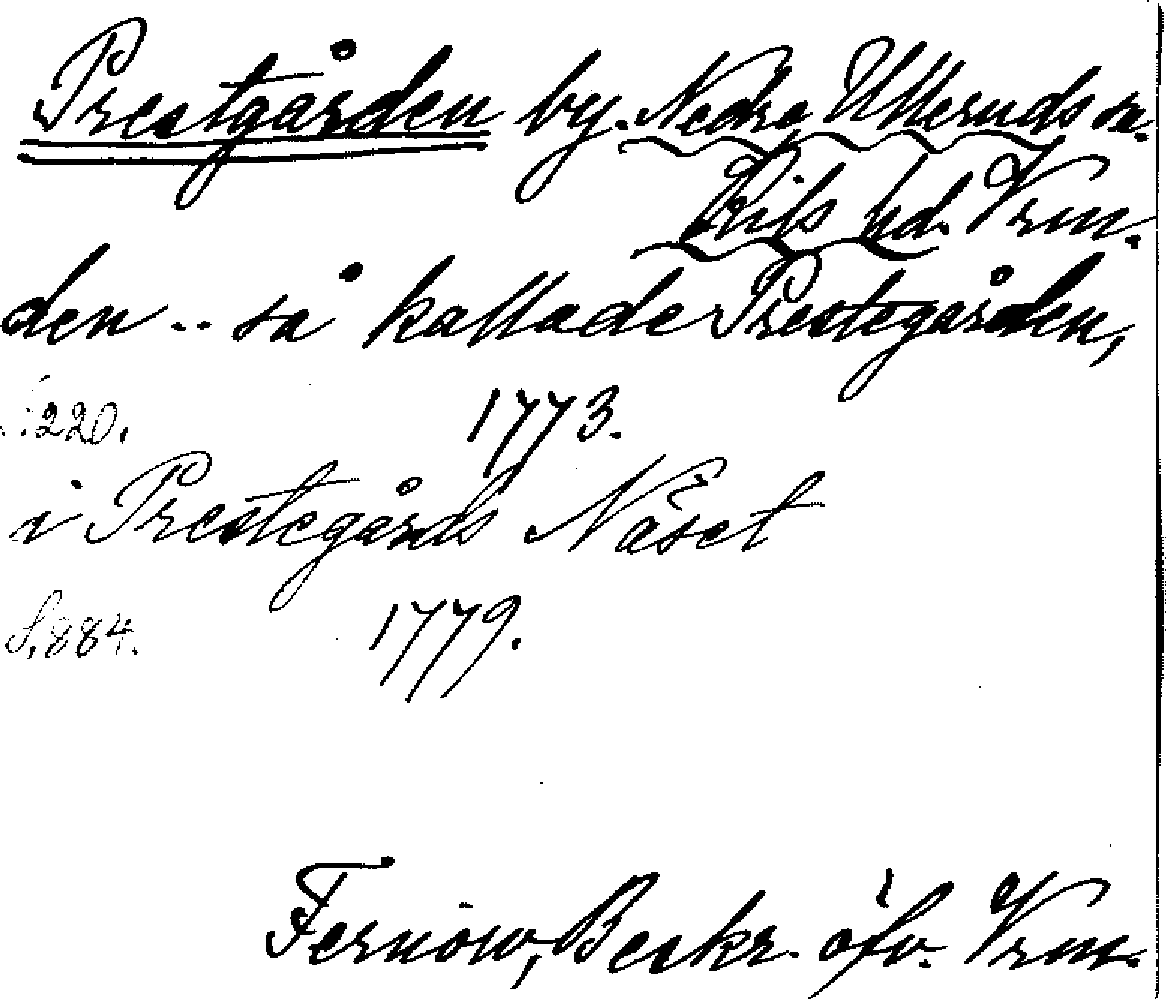 Prestgården by. Nedre Ulleruds sn.
Kils hd. Vrm.
den .. så kallade Prestegården,
S. 220. 1773.
i Prestegårds Näset
S. 884. 1779.
Fernow, Beskr. öfv. Vrm.